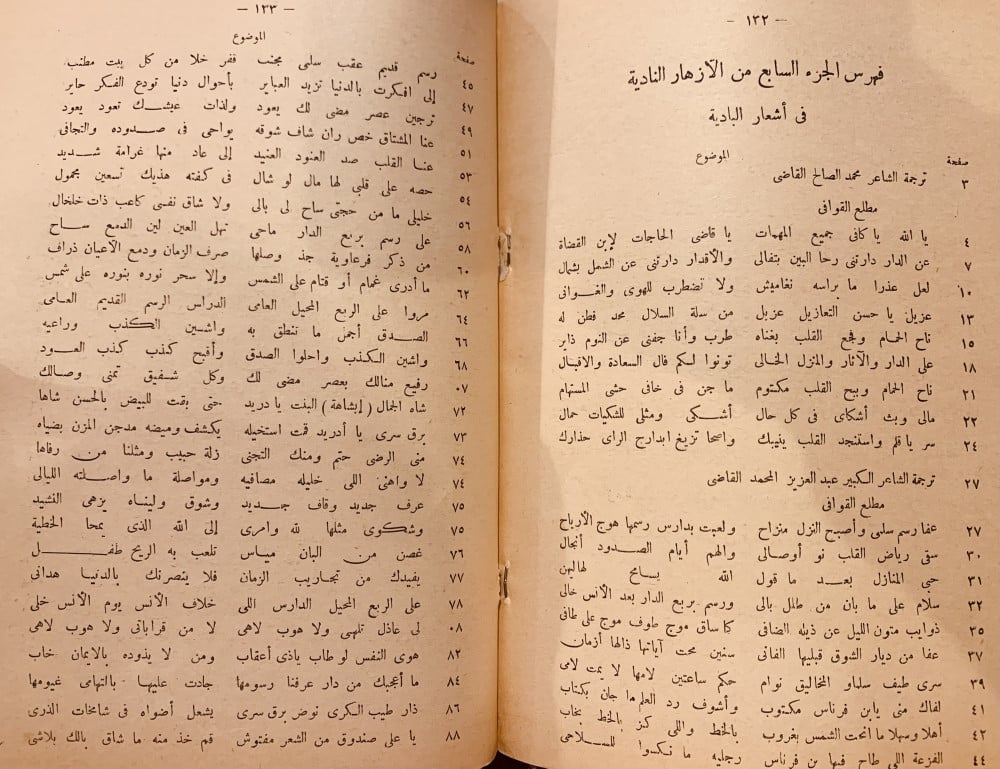 — ١٣٢ —
فهرس الجزء السابع من الأزهار النادية
فى أشعار البادية
صفحة الموضوع
٣ ترجمة الشاعر محمد الصالح القاضى
مطلع القوافى
٤ يا الله يا كافى جميع المهمات يا قاضى الحاجات لابن القضاة
٧ عن الدار دارتنى رحا البين بتفالى والأقدار دارتنى عن الشمل بشمال
١٠ لعل عذرا ما براسه نغاميش ولا تضطرب للهوى والغوانى
١٣ عزيل يا حسن التعازيل عزيل من سلة السلال محمد فطن له
١٥ ناح الحمام وفجع القلب بغناه طرب وأنا جفنى عن النوم ذاير
١٨ على الدار والآثار والمنزل الخالى تونوا لكم قال السعادة والاقبال
٢١ ناح الحمام وبيح القلب مكتوم ما جن فى خافى حشى المستهام
٢٢ مالى وبث أشكاى فى كل حال أشكى ومثلى للشكيات حمال
٢٤ سر يا قلم واستنجد القلب ينبيك واسحا تزيغ ابدارج الراى حذارك
٢٧ ترجمة الشاعر الكبير عبد العزيز المحمد القاضى
مطلع القوافى
٢٧ عفا رسم سلمى وأصبح النزل منزاح ولعبت بدارس رسمها هوج الأرياح
٣٠ سقى رياض القلب نو أوصالى والهم أيام الصدود أنجال
٣١ حى المنازل بعد ما قول الله يسامح لهالين
٣٢ سلام على ما بان من طلل بالى ورسم بربع الدار بعد الأنس خالى
٣٥ ذوايب متون الليل عن ذيله الضافى كما ساق موج طوف موج على طافى
٣٧ عفا من ديار الشوق قبليها الفانى سنين محت آياتها ذالها أزمان
٣٩ سرى طيف سلماو المخاليق نوام حكم ساعتين لامها لا يمت لامى
٤١ لفاك منى يابن فرناس مكتوب وأشوف رد العلم ما جان بكتاب
٤٢ أهلا وسهلا ما انحت الشمس بغروب بالخط واللى كنز بالخط بخاب
٤٤ الفزعة اللى طاح فيها بن فرناس رجليه ما نكدوا للملاحى
— ١٣٣ —
صفحة الموضوع
٤٥ رسم قديم عقب سلمى مجنب قفر خلا من كل بيت مطنب
٤٧ إلى افكرت بالدنيا تزيد العبابر بأحوال دنيا تودع الفكر حاير
٤٩ ترجين عصر مضى لك يعود ولذات عيشك تعود يعود
٥١ عنا المشتاق خص ران شاف شوقه يواحى فى صدوده والتجافى
٥٣ عنا القلب صد العنود العنيد إلى عاد منها غرامة شديد
٥٤ حصه على قلبى لها مال لو شال فى كفته هذيك تسعين بجمول
٥٦ خليلى ما من حجتى ساح لى بالى ولا شاق نفسى كاعب ذات خلخال
٥٨ على رسم بربع الدار ماحى تهل العين لين الدمع ساح
٦٠ من ذكر فرعاوية جذ وصلها صرف الزمان ودمع الأعيان ذراف
٦٢ ما أدرى غمام أو قتام على الشمس وإلا سحر نوره بنوره على شمس
٦٤ مروا على الربع المحيل العامى الدراس الرسم القديم العامى
٦٦ الصدق أجمل ما تنطق به واشين الكذب وراعيه
٦٨ واشين الكذب واحلوا الصدق وأقبح كذب كذب العود
٠٧ رفيع منالك بعصر مضى لك وكل شفيق تمنى وصالك
٧٢ شاه الجمال (إبشاهة) البنت يا دريد حتى بقت للبيض بالحسن شاها
٧٣ برق سرى يا أدريد قمت استخيله يكشف وميضه مدجن المزن بضياه
٧٤ منى الرضى حتم ومنك التجنى زلة حبيب ومثلنا من رفاها
٧٤ لا واهنى اللى خليله مصافيه ومواصلة ما واصلته الليالى
٧٥ عرف جديد وقاف جديد وشوق وليناه يزهى النشيد
٧٥ وشكوى مثلها لله وامرى إلى الله الذى يمحا الخطية
٧٦ غصن من البان مياس تلعب به الريح طفل
٧٧ يفيدك من تجاريب الزمان فلا يتصرنك بالدنيا هدانى
٧٨ على الربع المحيل الدارس اللى خلاف الأنس يوم الأنس خلى
٠٨ لى عاذل تلهى ولا هوب لاهى لا من قراباتى ولا هوب لاهى
٨٢ هوى النفس لو طاب ياذى أعقاب ومن لا يذوده بالايمان خاب
٨٤ ما أعجيك من دار عرفنا رسومها جادت عليها بالتهامى غيومها
٨٦ ذار طيب الكرى نوض برق سرى يشعل أضواه فى شامخات الذرى
٨٨ يا على صندوق من الشعر مفتوش قم خذ منه ما شاق بالك بلاشى